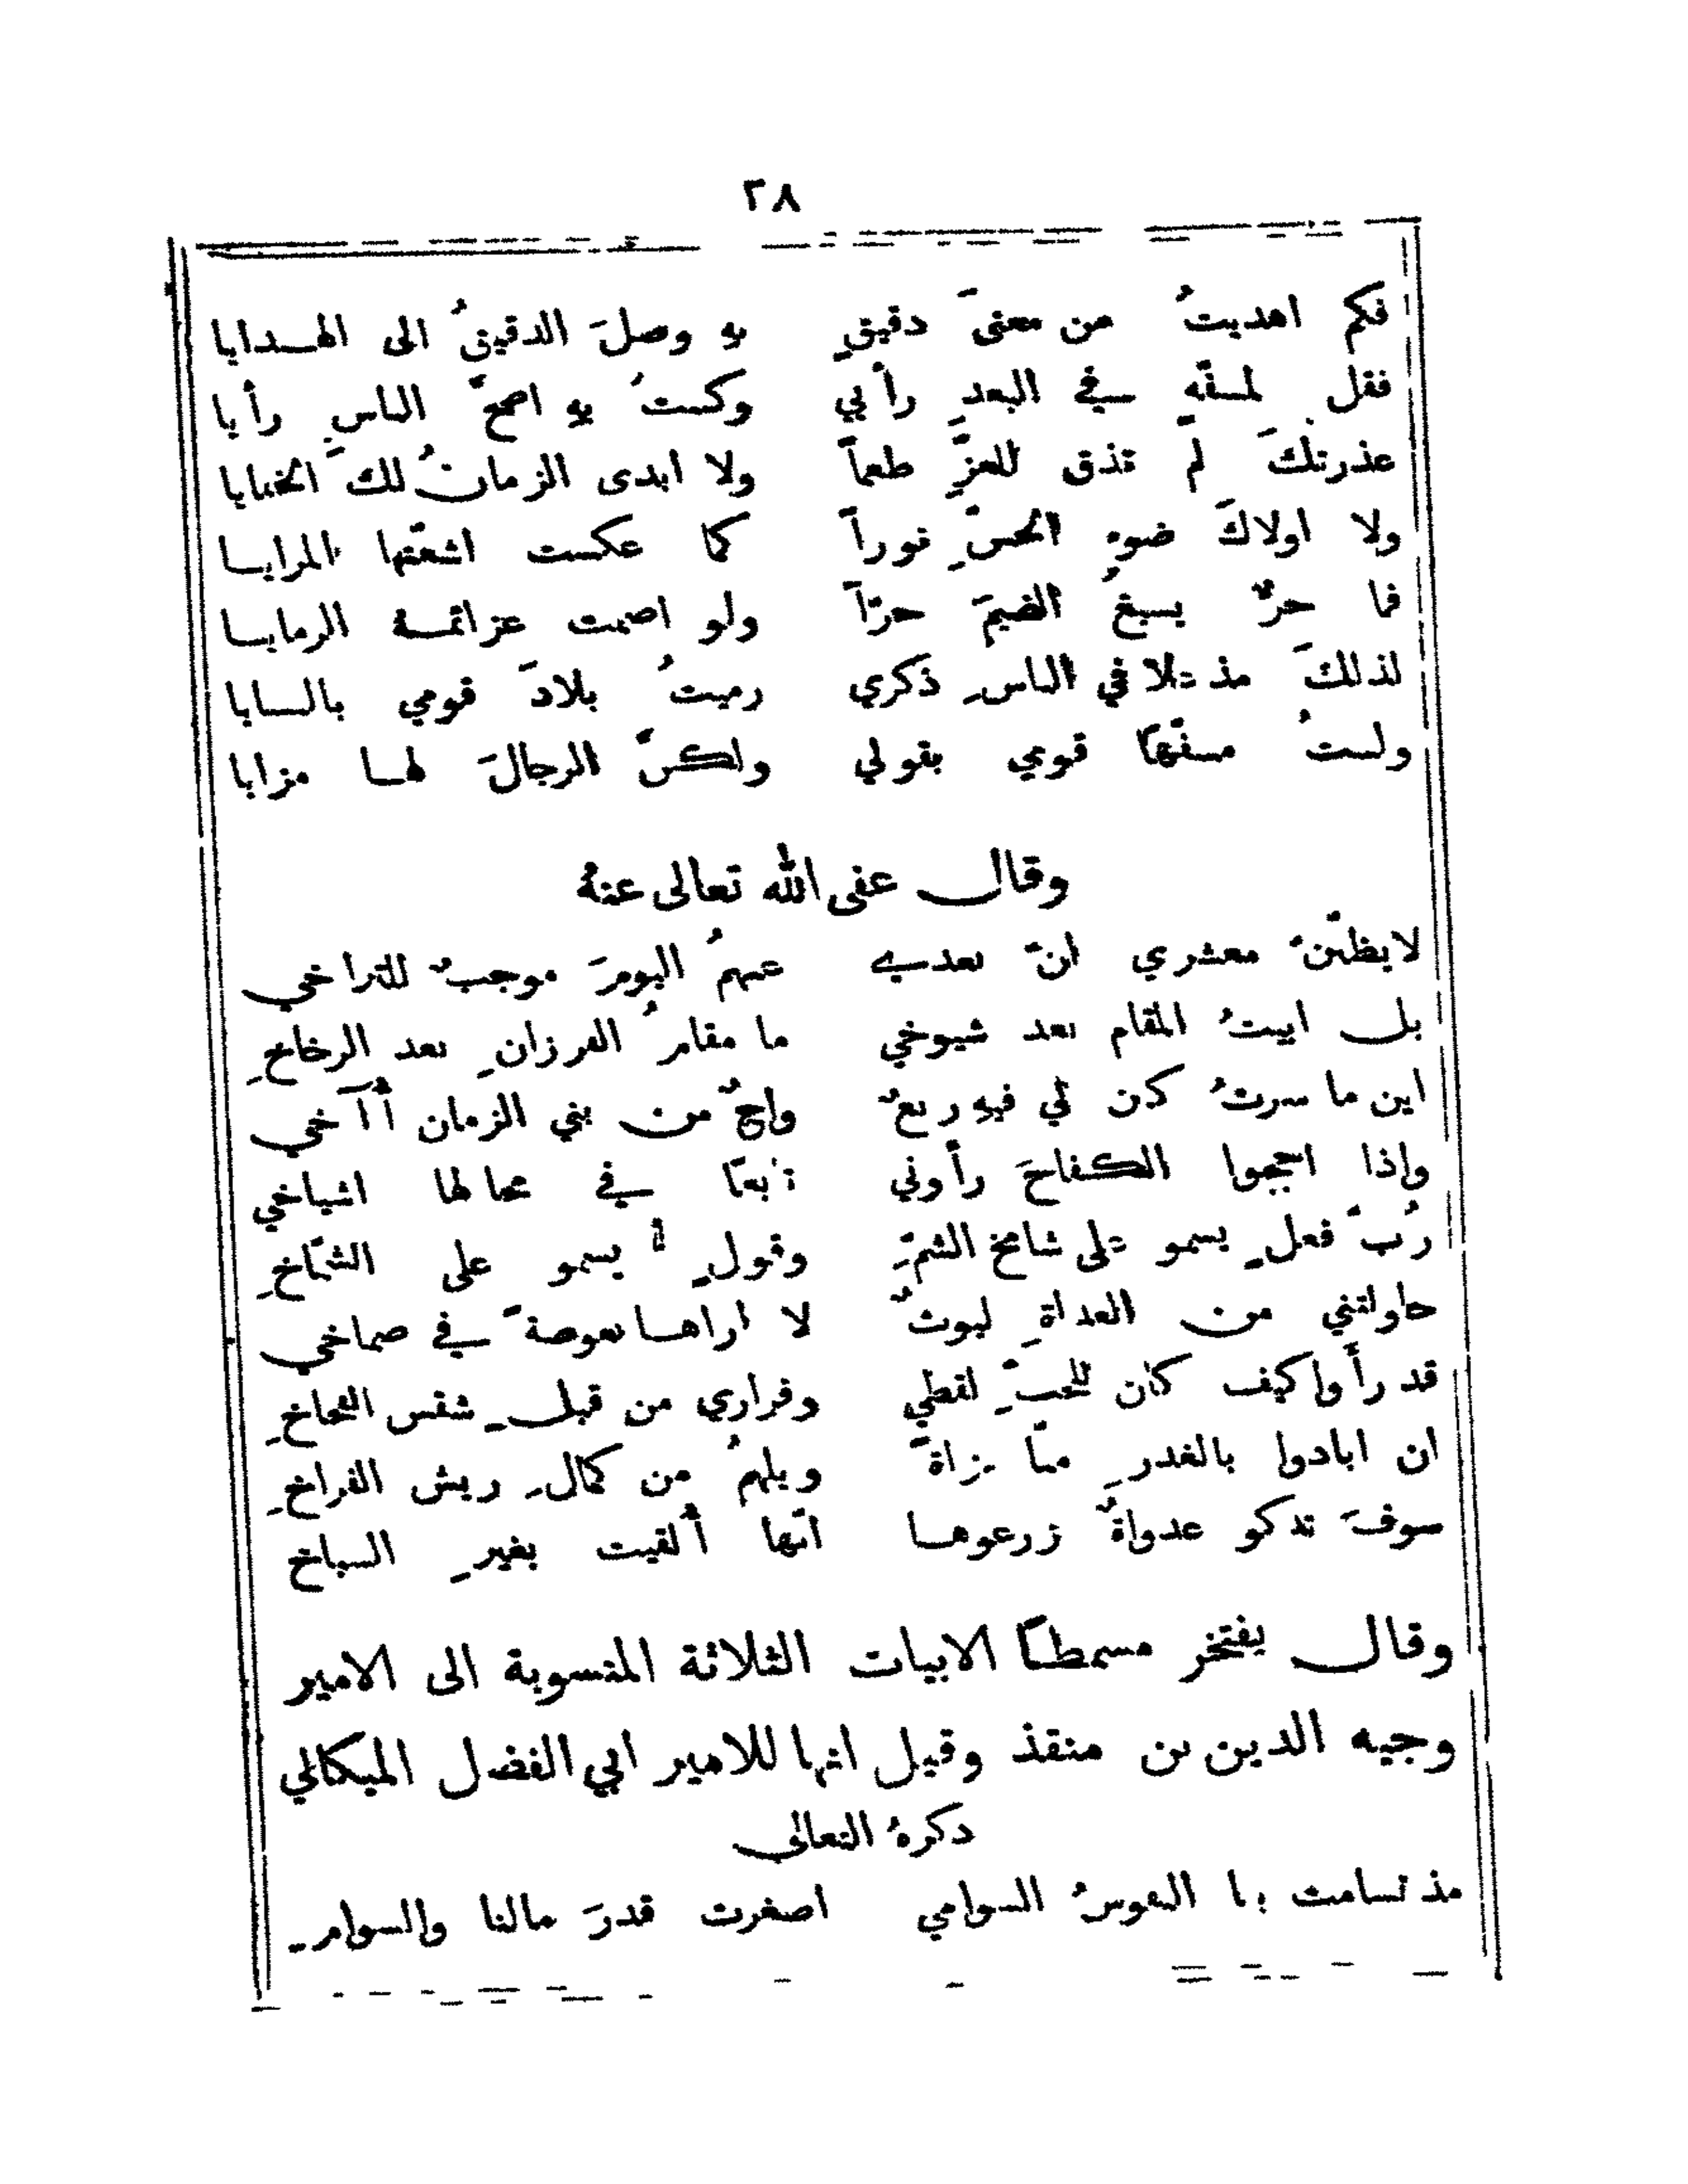 ٢٨
فكم اهديتُ من معنىً دقيقٍ به وصلَ الدقيقُ الى الهدايا
فقل لمسفّهٍ في البعدِ رأيي وكنتُ به اصحَّ الناسِ رأيا
عذرتكَ لم تذق للعزِّ طعماً ولا ابدى الزمانُ لكَ الخبايا
ولا اولاكَ ضوء الحسِّ نوراً كما عكست اشعتّها المرايا
فما حرٌّ يسيغُ الضيمَ حرّاً ولو اصمت عزائمه الرمايا
لذلكَ مذ علا في الناسِ ذكري رميتُ بلادَ قومي بالسايا
ولستُ مسفّهًا قومي بقولي ولكنَّ الرجالَ لها مزايا
وقال عفى الله تعالى عنهُ
لا يظنّنَ معشري انَّ بعدي عنهمُ اليومَ موجبٌ للتراخي
بل ابيتُ المقام بعد شيوخي ما مقامُ الفرزانِ بعد الرخاخِ
اين ما سرتُ كان لي فيه ربعٌ واخٌ من بني الزمان أُآخي
واذا احجموا الكفاحَ رأوني تابعًا في مجالها اشياخي
رُبَّ فعلٍ يسمو على شامخ الشمِّ وقولٍ يسمو على الشمّاخِ
حاولتني من العداةِ ليوثٌ لا اراها بعوصةً في صماخي
قد رأَوا كيف كان للحبِّ لقطي وفراري من قبلِ شقس الفخاخِ
ان ابادوا بالغدرِ منّا بزاةً ويلهمُ من كمالِ ريش الفراخِ
سوفَ تذكو عدواةٌ زرعوها انّها أُلقيت بغيرِ السباخ
وقال يفتخر مسمطًا الابيات الثلاثة المنسوبة الى الامير
وجيه الدين بن منقذ وقيل انها للامير ابي الفضل الميكالي
ذكرهُ الثعالبي
مذ تسامت بنا النفوسُ السوامي اصغرت قدرَ مالنا والسوامِ